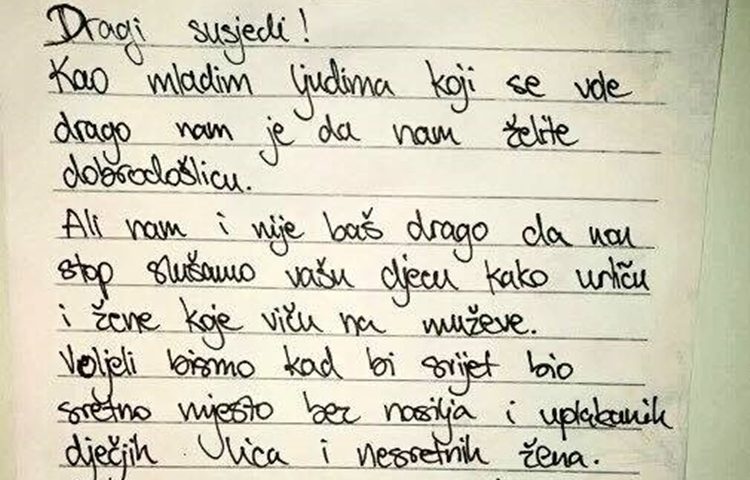 Dragi susjedi!
Kao mladim ljudima koji se vole
drago nam je da nam želite
dobrodošlicu.
Ali nam i nije baš drago da non
stop slušamo vašu djecu kako urliču
i žene koje viču na muževe.
Voljeli bismo kad bi svijet bio
sretno mjesto bez nasilja i uplakanih
dječjih lica i nesretnih žena.